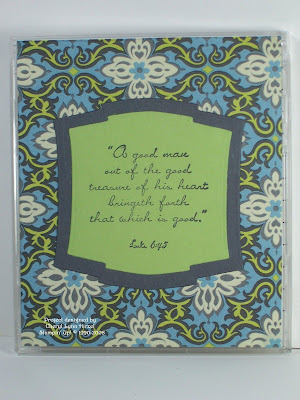 "A good man
out of the good
treasure of his heart
bringeth forth
that which is good."
Luke 6:45
Project designed by
Cheryl Lynn
Stampin' Up! © 1990-2008